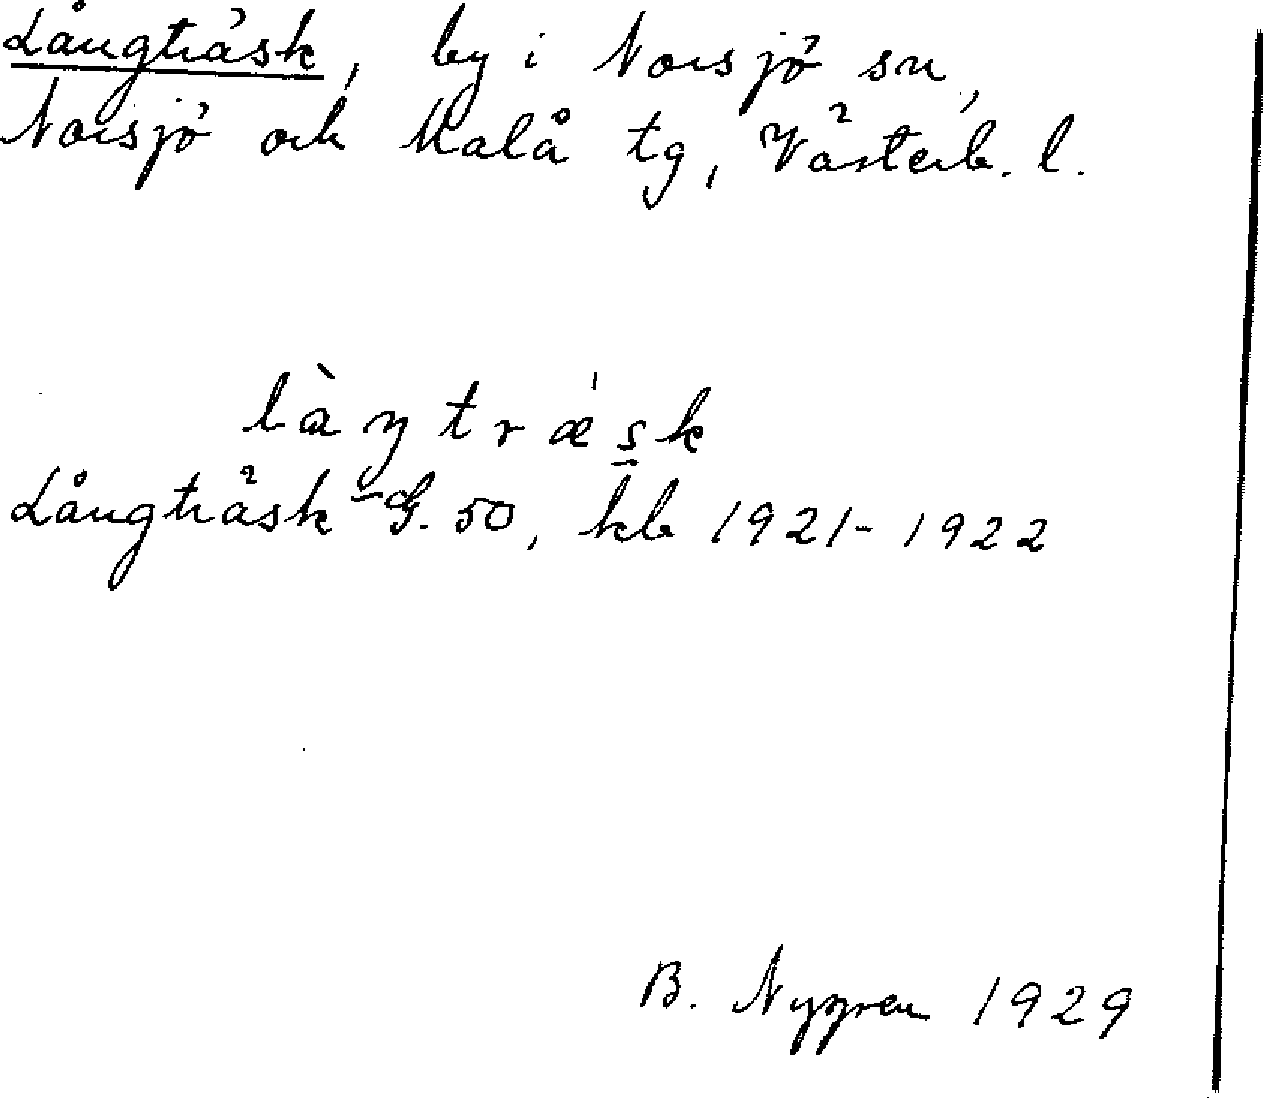 Långträsk, by i Norsjö sn,
Norsjö och Malå tg, Västerb. l.
làŋtrǽsk
Långträsk G. 50, kb 1921-1922
B. Nygren 1929